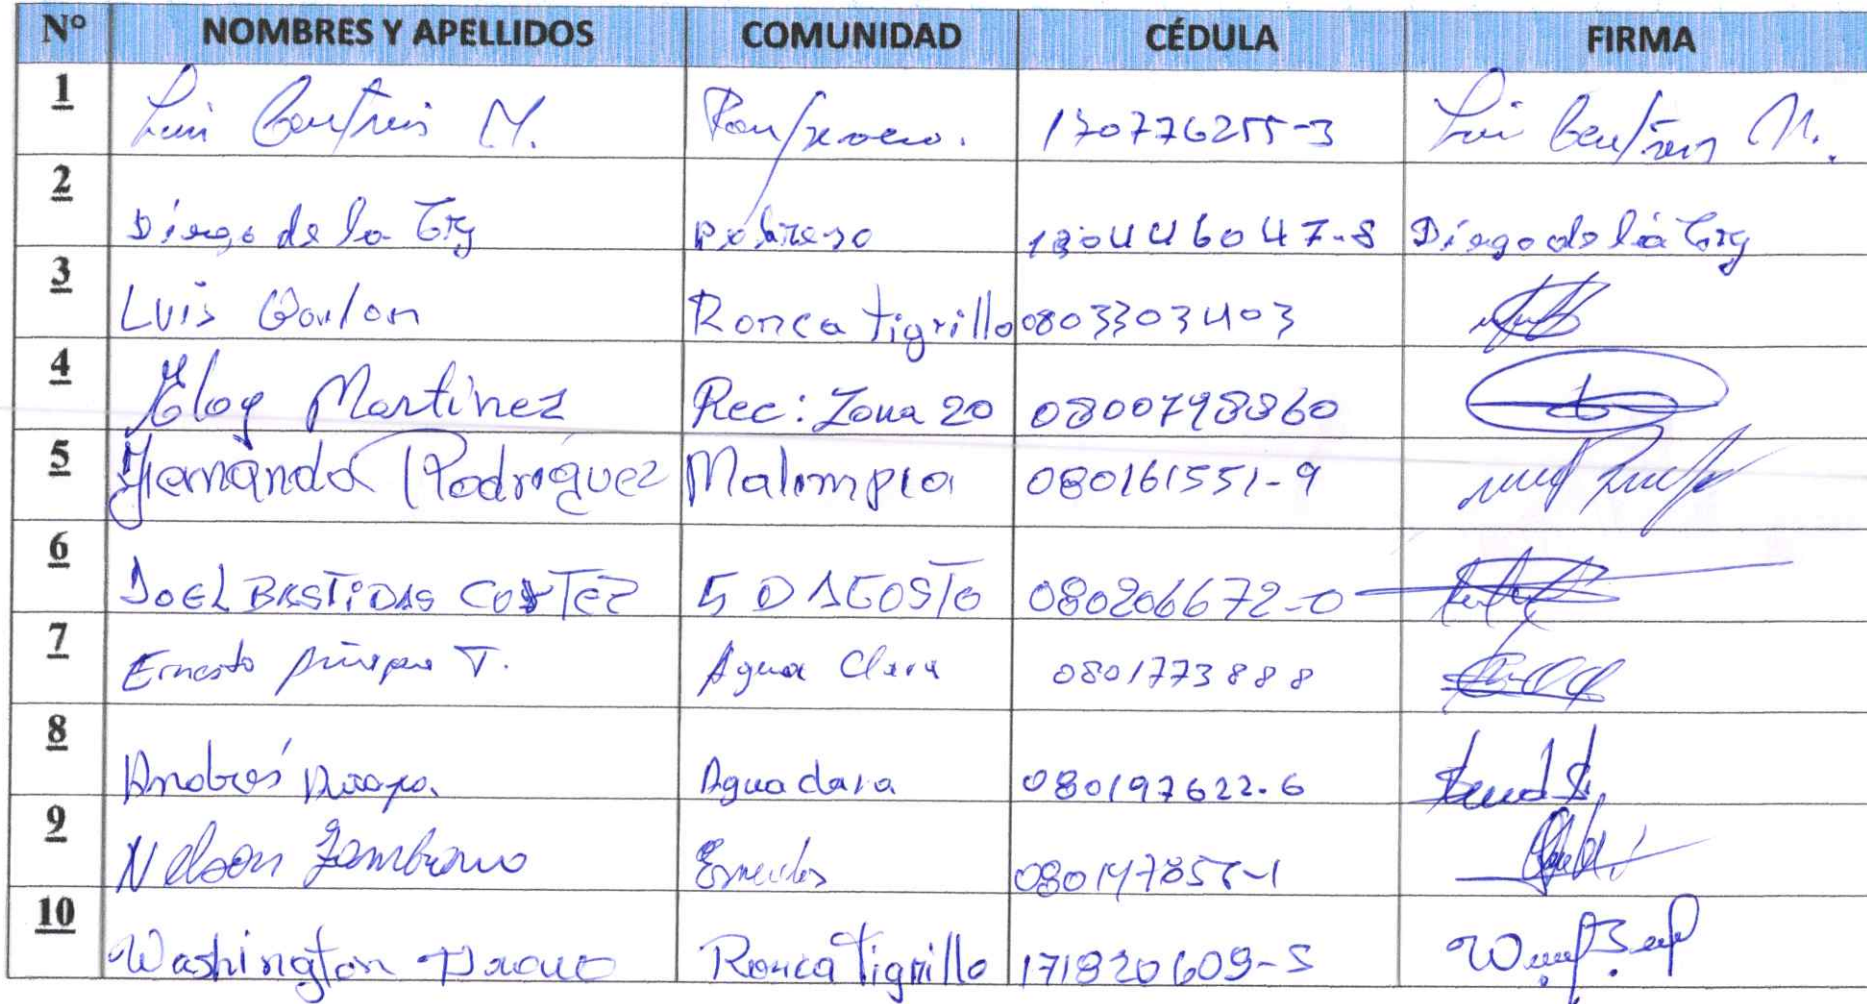 Nº NOMBRES Y APELLIDOS COMUNIDAD CÉDULA FIRMA
1 Luis M. 170776255-3 Luis M.
2 Diego de la 180446047-8 Diego de la
3 Luis Ronca tigrillo 0803303403
4 Eloy Martinez Rec: Zona 20 0800798860
5 Hernando Rodríguez Malimpia 080161551-9
6 JOEL BASTIDAS CORTEZ 5 D AGOSTO 080206672-0
7 Ernesto T. Agua Clara 0801773888
8 Andrés Agua clara 080197622-6
9 Nelson Zambrano
10 Washington Ronca Tigrillo 171820609-5